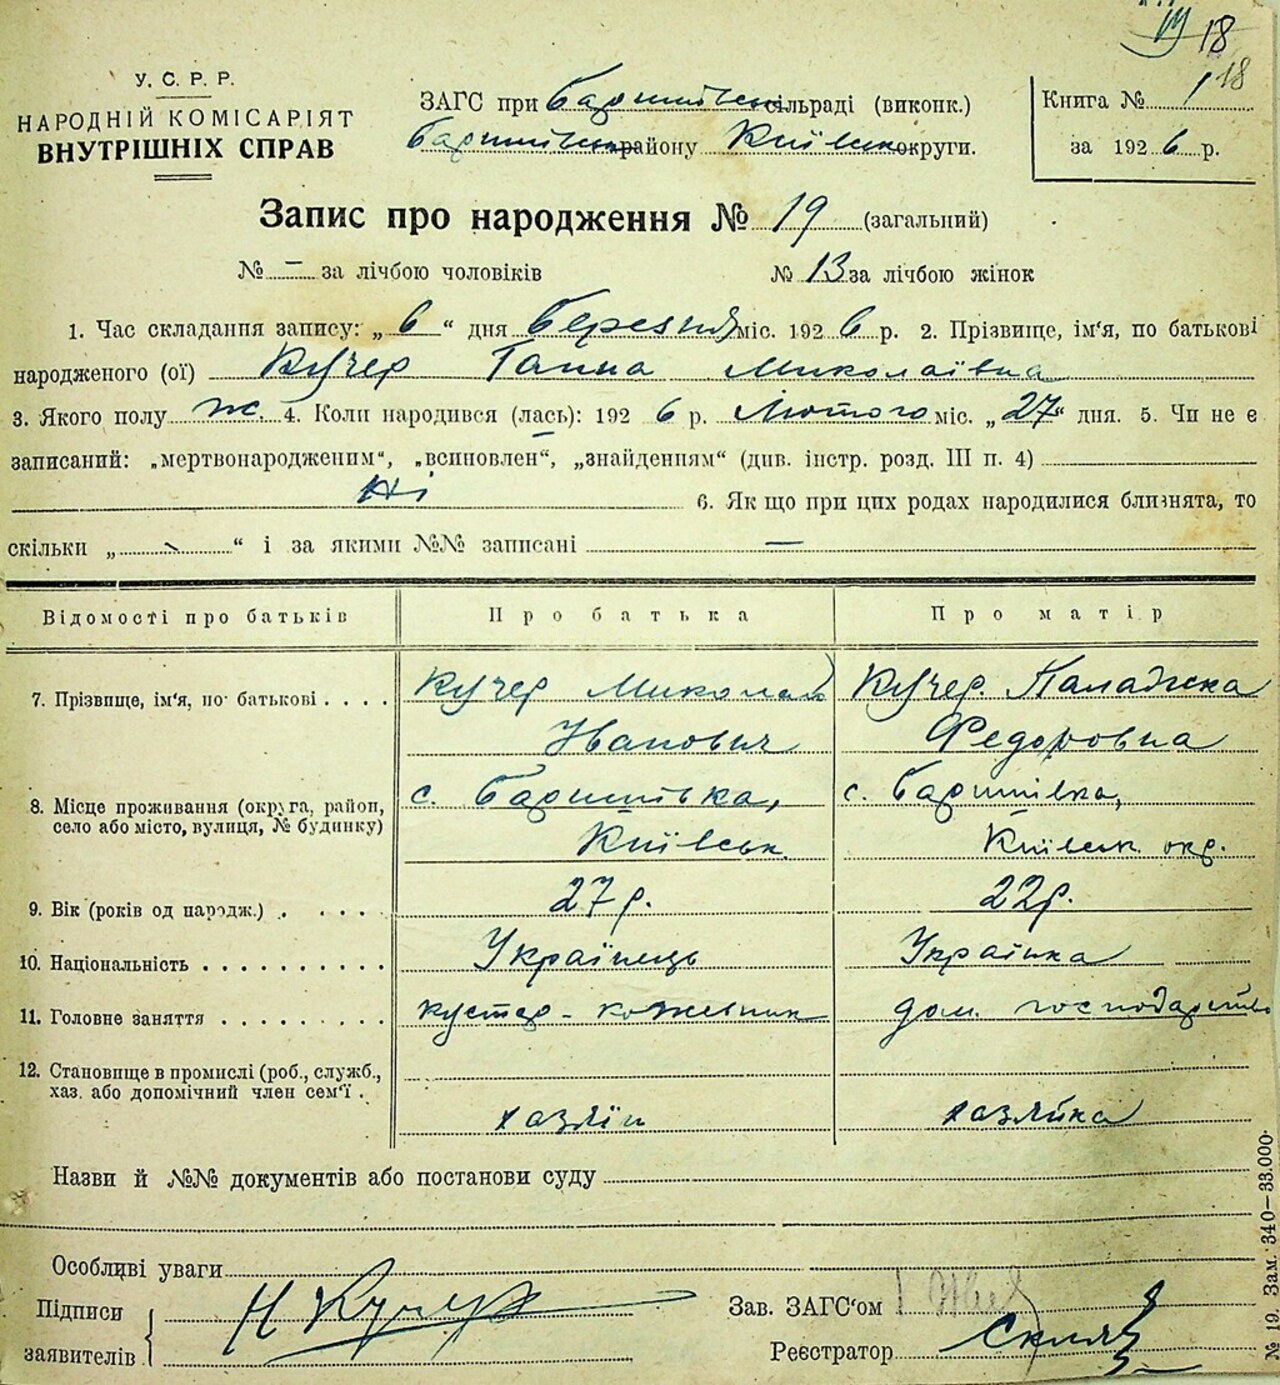 18
У. С. Р. Р.
НАРОДНІЙ КОМІСАРІЯТ
ВНУТРІШНІХ СПРАВ
ЗАГС при Баришівськ сільраді (виконк.)
Баришівськ району Київськ округи.
Книга № 1 18
за 1926 р.
Запис про народження № 19 (загальний)
№ – за лічбою чоловіків № 13 за лічбою жінок
1. Час складання запису: „6“ дня березня міс. 1926 р. 2. Прізвище, ім'я, по батькові
народженого (ої) Кучер Ганна Миколаївна
3. Якого полу ж. 4. Коли народився (лась): 1926 р. Лютого міс. „27“ дня. 5. Чи не є
записаний: „мертвонародженим“, „всиновлен“, „знайденням“ (див. інстр. розд. III п. 4)
Ні 6. Як що при цих родах народилися близнята, то
скільки „ - “ і за якими №№ записані —
Відомості про батьків Про батька Про матір
7. Прізвище, ім'я, по батькові . . . . Кучер Миколай Кучер Палажка
Иванович Федоровна
8. Місце проживання (округа, район, с. Баришівка, с. Баришівка,
село або місто, вулиця, № будинку) Київськ. Київськ. окр.
9. Вік (років од народж.) . . . . . 27 р. 22 р.
10. Національність . . . . . . . . . . Українець Українка
11. Головне заняття . . . . . . . . . кустар - кожевник дом. господарство
12. Становище в промислі (роб., служб.,
хаз. або допомічний член сем'ї . хазяїн хазяйка
Назви й №№ документів або постанови суду
Особливі уваги
Підписи Н Кучер Зав. ЗАГС'ом
заявителів Реєстратор
№ 19. Зам. 340—33.000.